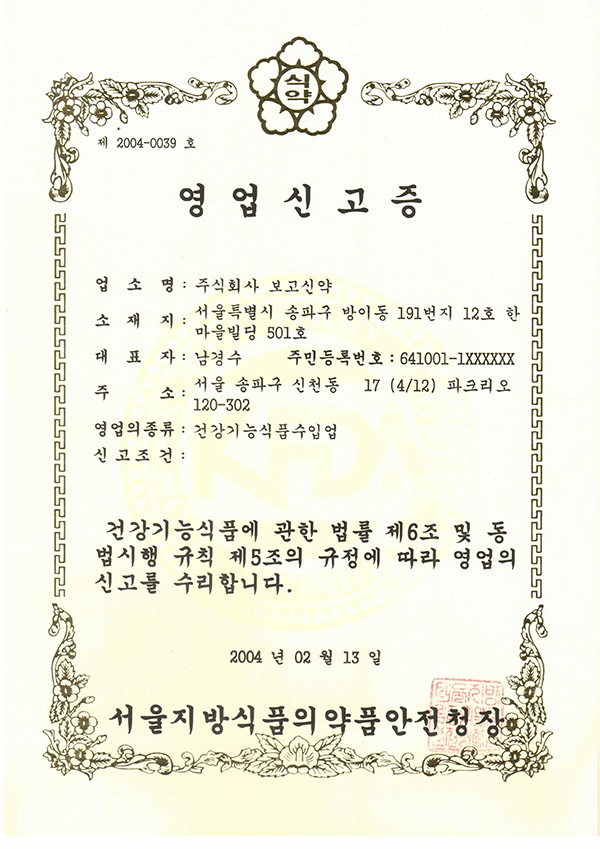 식
약
제 2004-0039 호
영업신고증
업 소 명 : 주식회사 보고신약
소 재 지 : 서울특별시 송파구 방이동 191번지 12호 한
마을빌딩 501호
대 표 자 : 남경수 주민등록번호 : 641001-1XXXXXX
주 소 : 서울 송파구 신천동 17 (4/12) 파크리오
120-302
영업의종류 : 건강기능식품수입업
신고조건 :
KFDA
건강기능식품에 관한 법률 제6조 및 동
법시행 규칙 제5조의 규정에 따라 영업의
신고를 수리합니다.
2004 년 02 월 13 일
서울지방식품의약품안전청장